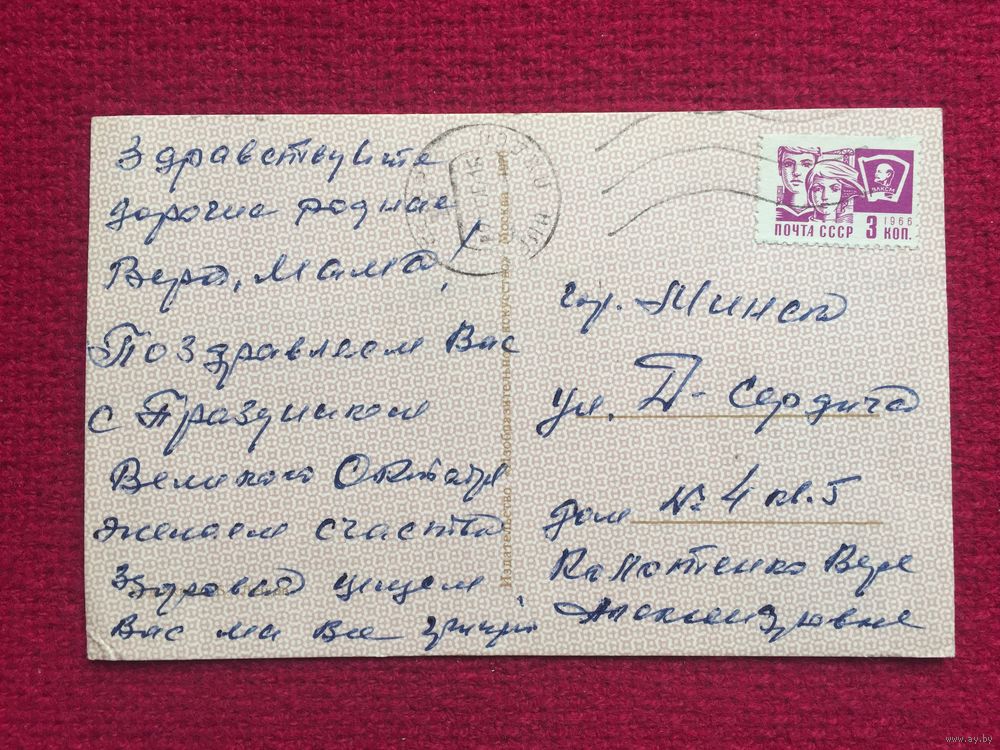 Здравствуйте
дорогие родные
Вера, Мама!
Поздравляем Вас
с Праздником
Великого Октября
желаем счастья
Здоровья целуем
Вас мы Все
Издательство «Изобразительное искусство» Москва
ПОЧТА СССР 3 КОП.
1966
ВЛКСМ
гор. Минск
ул. Д- Сердича
дом № 4 кв. 5
Вере
Александровне
www.ay.by